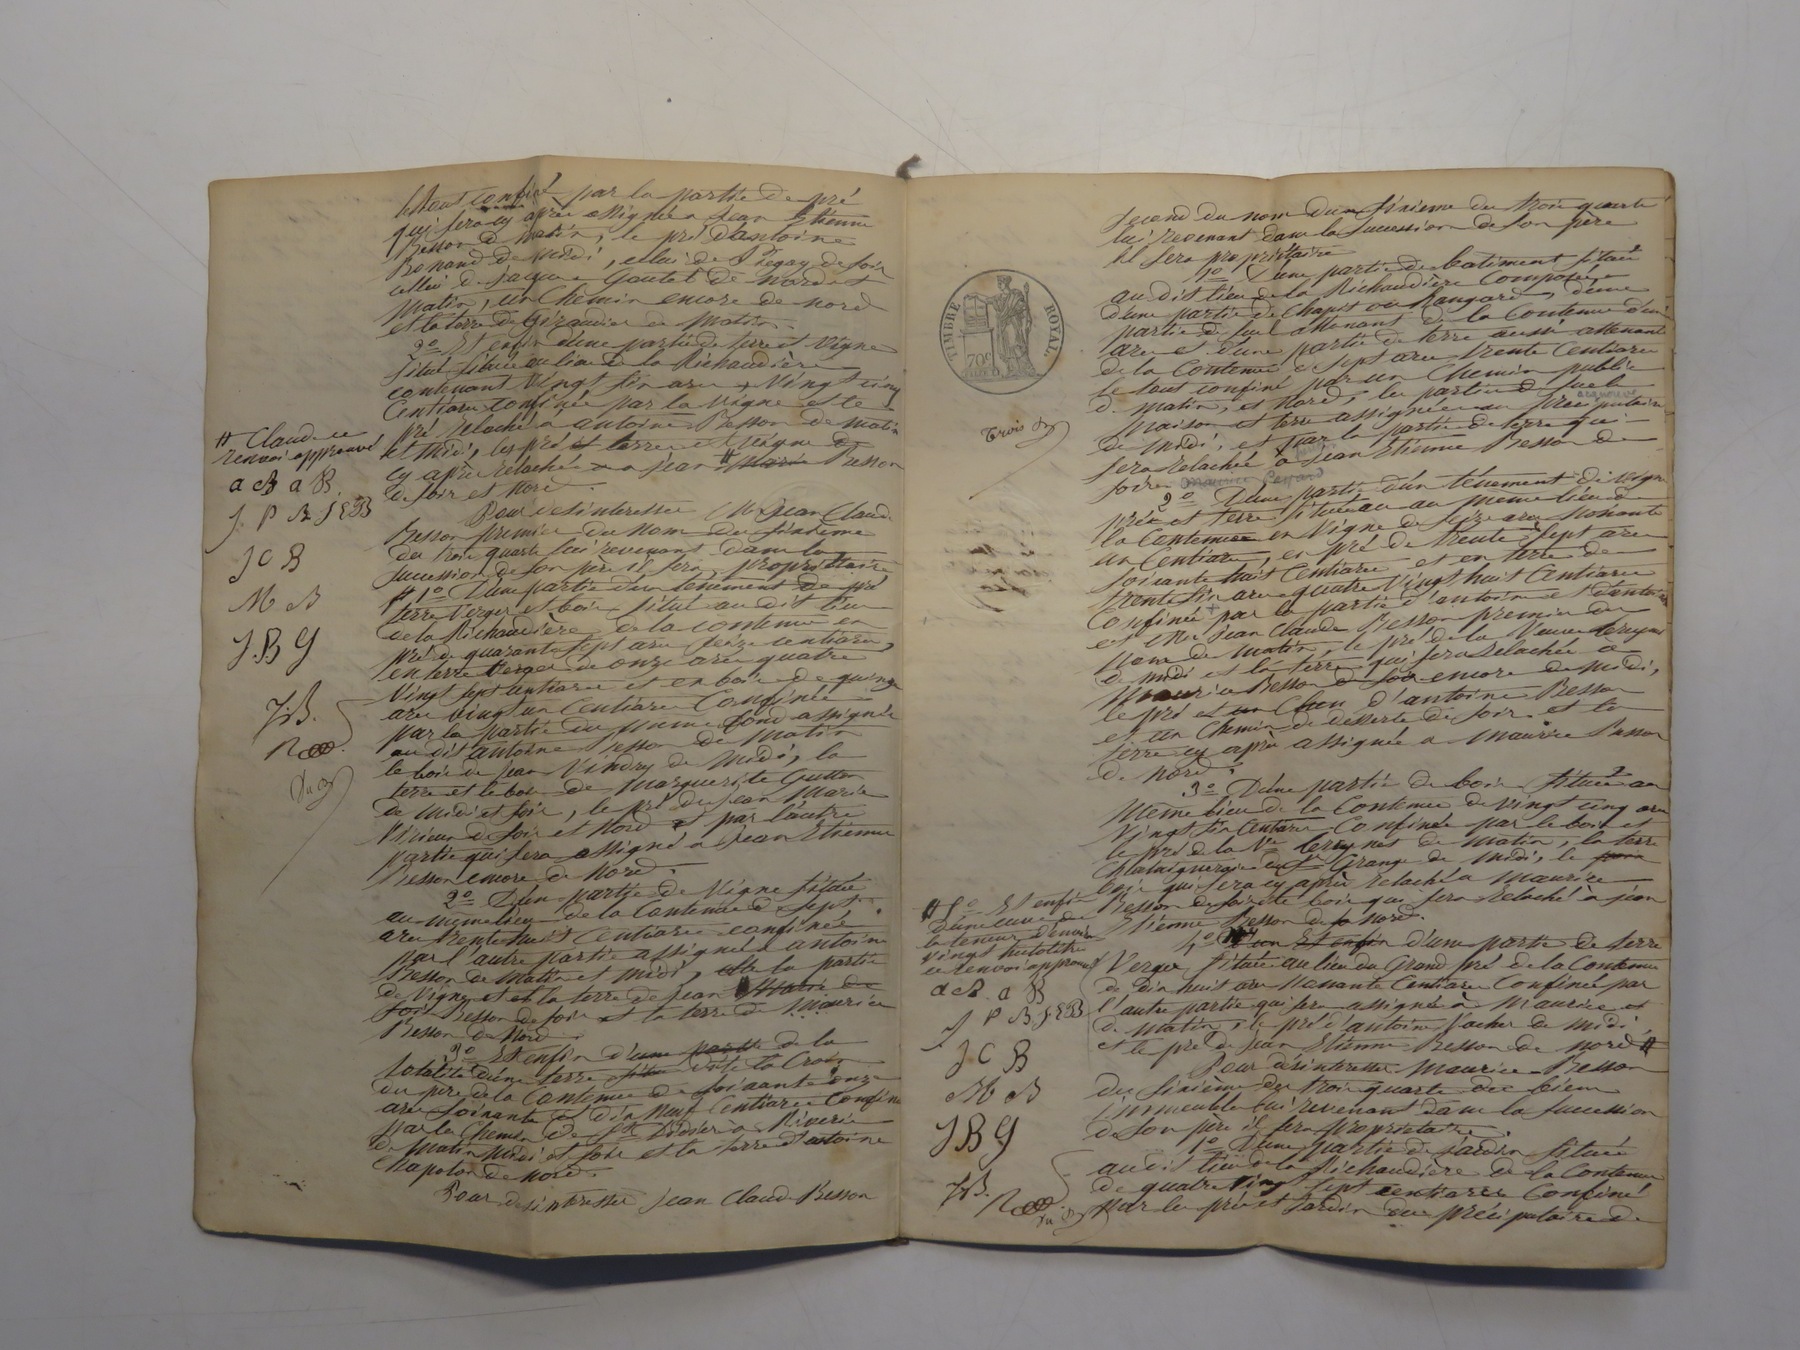 le tout confiné par la partie de pré
qui sera cy après assignée a Jean Etienne
Besson de matin, le pré d'antoine
Bonand de midi, celui de Piegay de soir
celui de Jacques Goutet de nord et
matin, un Chemin encore de nord
et la terre de Giraudier de Matin.
3o Et enfin d'une partie de terre et Vigne
situé au lieu de la Richaudière
contenant Vingt six ares Vingt cinq
Centiares confinée par la vigne et le
pré relaché a antoine Besson de matin
et midi, les pré et terre et vigne
cy après relachée a Jean # Marie Besson
de soir et Nord.
# Claude ce
renvoi approuvé
a cB a B.
J. P B J E B
J C B
M B
J B G
J B.
Pour desinteresser Jean Claude
Besson premier du nom du sixième
des trois quarts lui revenant dans la
succession de son père il sera propriétaire
1o D'une partie d'un tenement de pré
terre Verger et bois situé au dit lieu
de la Richaudière de la contenue en
pré de quarante sept ares seize centiares,
en terre Verger de onze ares quatre
Vingt sept centiares et en bois de quinze
ares vingt un Centiares Confinée
par la partie du meme fond assignée
au dit antoine Besson de Matin
le bois de Jean Vindry de Midi, la
terre et le bois de Marguerite Gutton
de Midi et soir, le pré de Jean Marie
Vivien de soir et Nord et par l'autre
partie qui sera assigné a Jean Etienne
Besson encore de Nord.
2o D'un partie de Vigne située
au même lieu de la Contenue de sept
ares trente huit Centiares confinée
par l'autre partie assignée a antoine
Besson de Matin et midi, la partie
de Vigne et la terre de Jean
Besson de soir et la terre de Maurice
Besson de Nord.
3o Et enfin d'une partie de la
totalité d'une terre dite la Croix
du pré de la Contenue de soixante onze
ares soixante et dix neuf Centiares Confiné
par le Chemin de St Didier a Riverie
de Matin Midi et soir et la terre d'antoine
Chapolon de Nord.
Pour desinteresser Jean Claude Besson
TIMBRE ROYAL
70c
Trois
second du nom d'un sixieme des trois quarts
lui revenant dans la succession de son père
il sera propriétaire
1o D'une partie de batiment située
au dit lieu de la Richaudière Composée
d'une partie de Chapit ou Hangard, d'une
partie de suel attenant de la Contenue d'un
are et d'une partie de terre aussi attenant
de la Contenue de sept ares trente Centiares
le tout confiné par un Chemin public
de matin, et Nord, les parties de suel
maison et terre assignée au précipulaire
de midi, et par la partie de terre qui
sera relachée a Jean Etienne Besson de
soir. Maurice
2o D'une partie d'un ténement de vigne
pré et terre située au meme lieu de
la Contenue en Vigne de seize ares soixante
un Centiares, en pré de trente sept ares
soixante huit Centiares et en terre de
trente six ares quatre Vingt huit Centiares
Confinée par la partie d'antoine
et Jean Claude Besson premier du
nom de matin, le pré de la Veuve
de midi et la terre qui sera relachée a
Maurice Besson encore de midi,
le pré d'antoine Besson
et un Chemin de desserte de soir et la
terre cy après assignée a Maurice Besson
de Nord.
3o D'une partie de bois située au
meme lieu de la Contenue de vingt cinq ares
Vingt six Centiares Confinée par le bois et
le pré de la Vve de Matin, la terre
Chataigneraie du Sr Grange de Midi, le
bois qui sera cy après relaché a Maurice
Besson de soir et le bois qui sera relaché à Jean
Etienne Besson de Nord.
4o d'une partie de terre
Verger située au lieu du Grand pré de la Contenue
de dix huit ares Nonante Centiares Confinée par
l'autre partie qui sera assignée à Maurice
de matin, le pré d'antoine Vacher de midi
et le pré de Jean Etienne Besson de Nord #
# 5o Et enfin
D'une cuve de
la teneur d'environ
vingt hectolitres
ce renvoi approuvé
a cB. a B
J P B J E B
J C B
M B
J B G
J B.
Pour désinteresser Maurice Besson
du sixième des trois quarts des biens
immeubles lui revenant dans la succession
de son père il sera propriétaire.
1o D'une partie de Jardin située
au dit lieu de la Richaudière de la Contenue
de quatre vingt sept centiares Confiné
par les pré et Jardin du précipulaire de